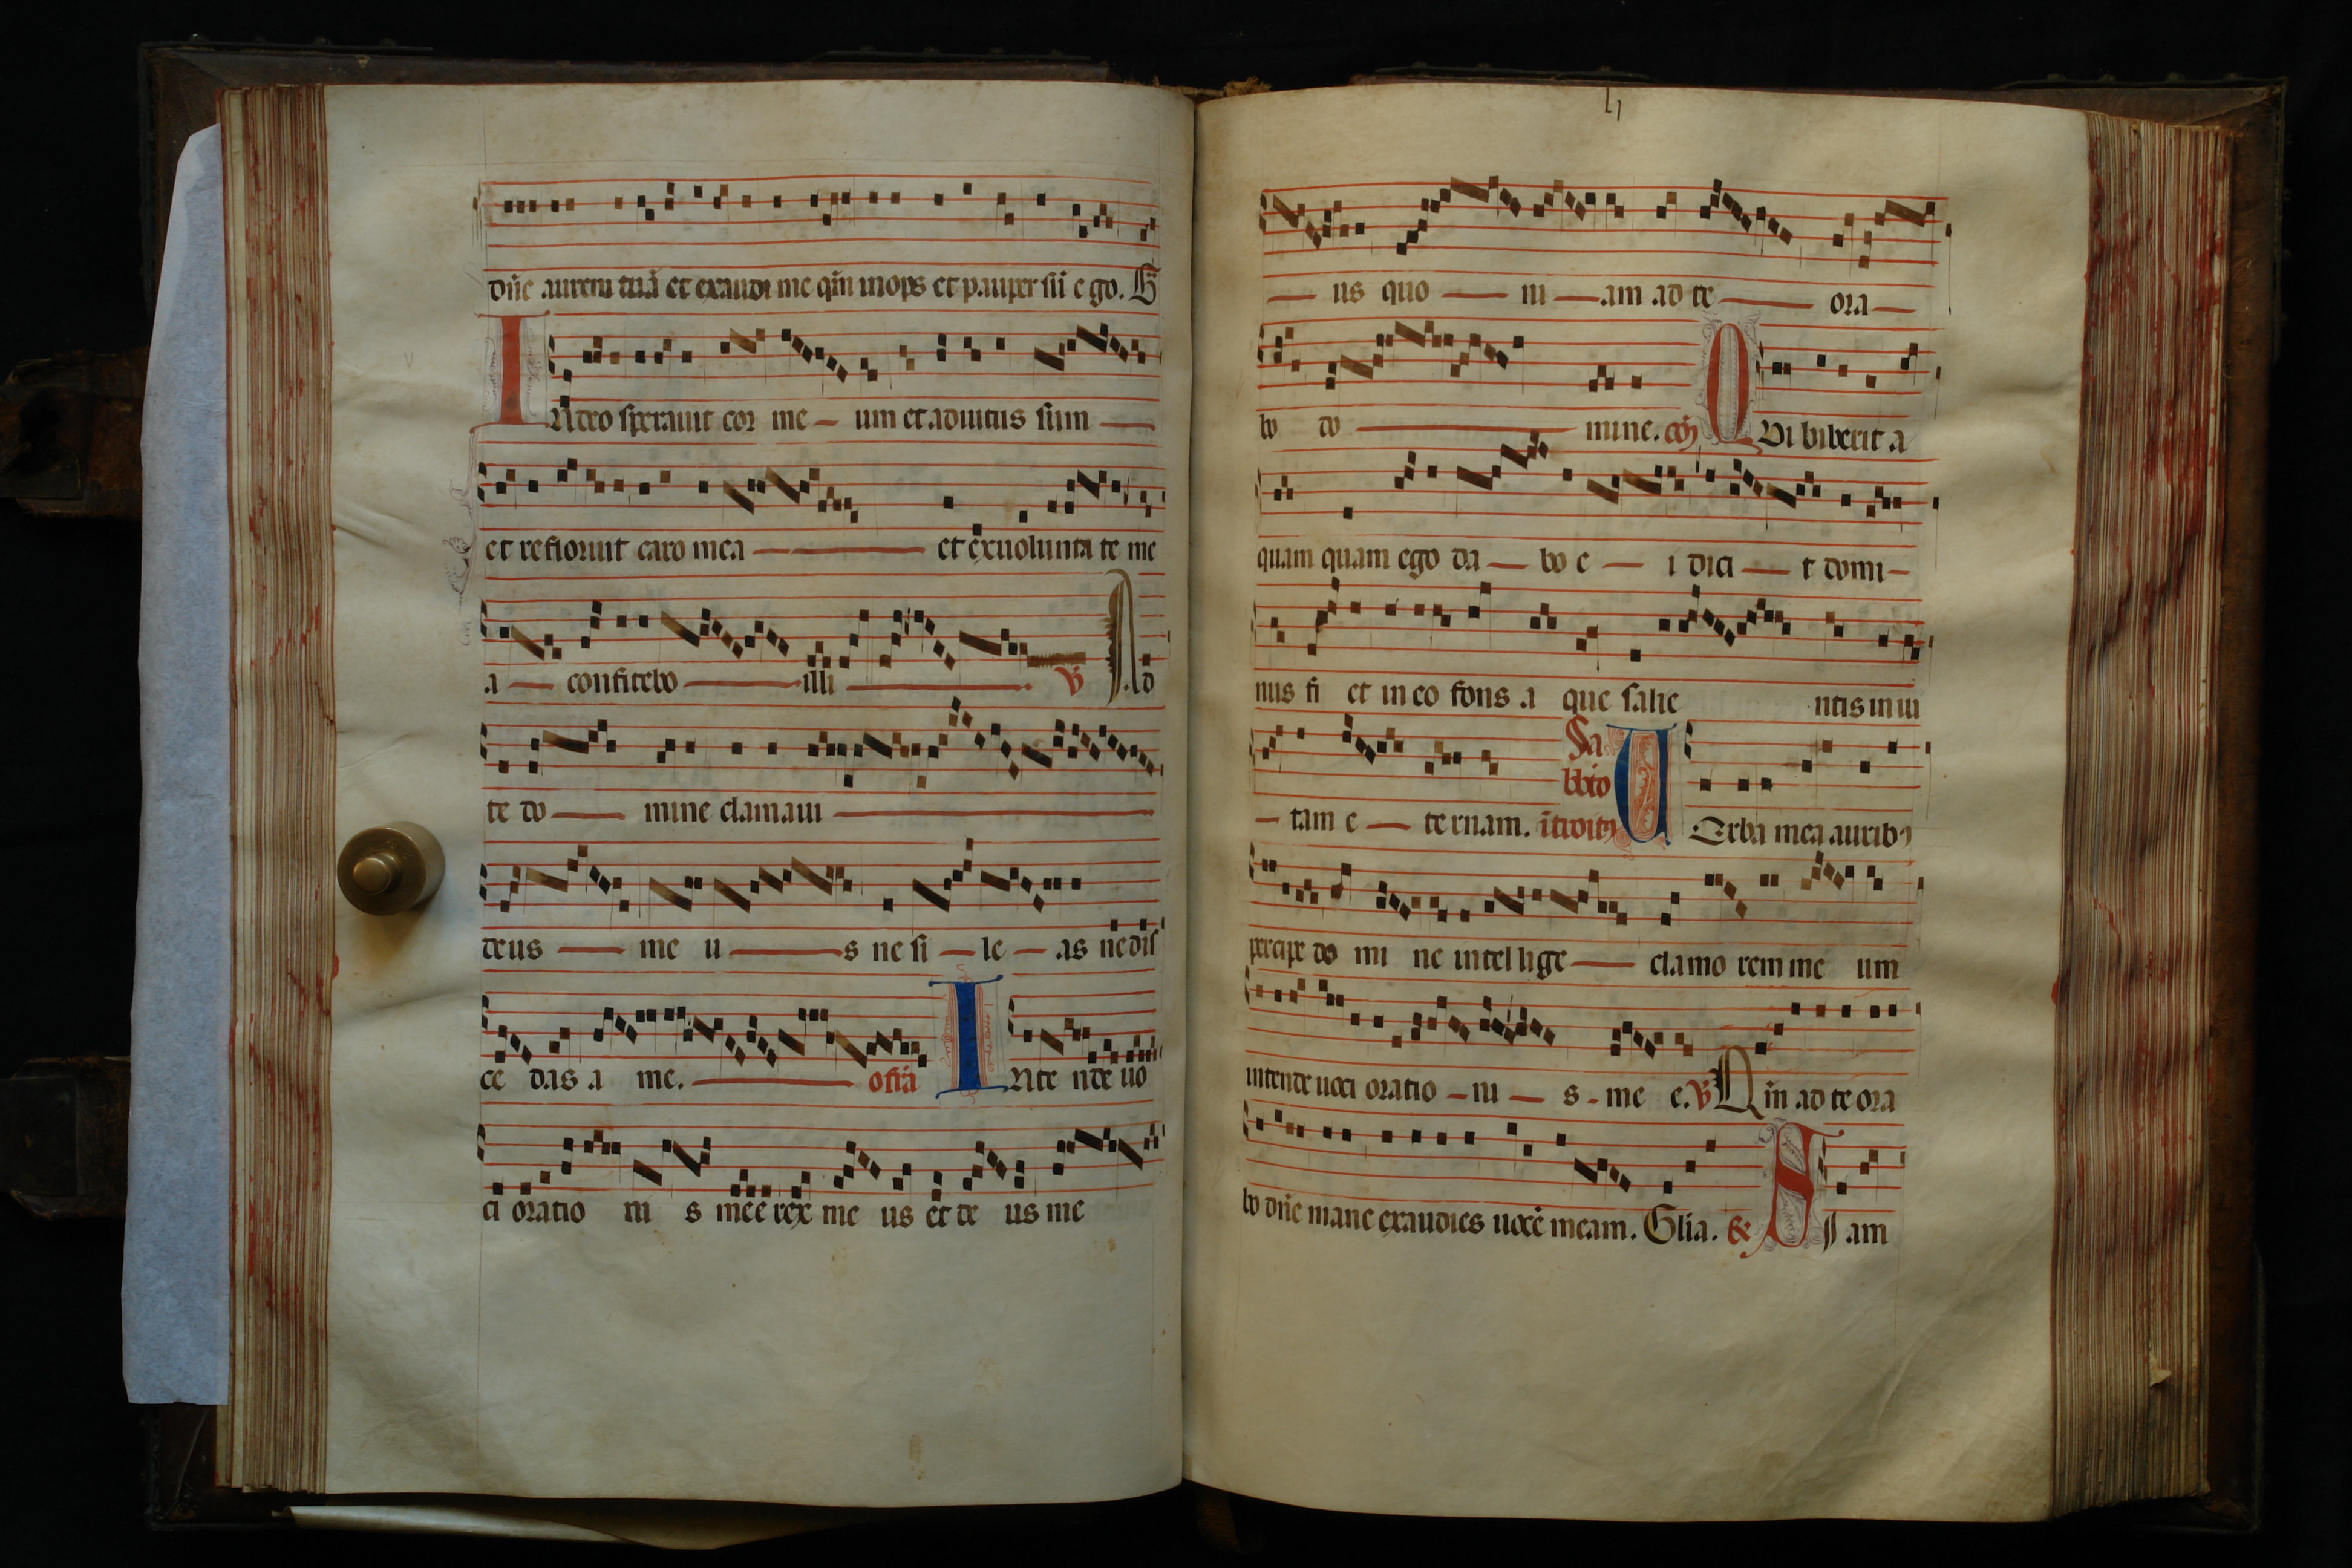 dñe aurem tuã et exaudi me qm̃ inops et pauper sũ ego. G̃
IN deo sperauit cor me um et adiutus sum
et refloruit caro mea et ex uolunta te me
a confitebo illi ℣ Ad
te do mine clamaui
deus me u s ne si le as ne dis
ce das a me. offã INte nde uo
ci oratio ni s mee rex me us et de us me
us quo ni am ad te ora
bo do mine. cõ QVi biberit a
quam quam ego da bo e i dici t domi
nus fi et in eo fons a que salie ntis in ui
Sa
bbto
tam e te rnam. ĩtroitꝰ VErba mea auribꝰ
percipe do mi ne intellige clamo rem me um
intende uoci oratio ni s me e. ℣ Qm̃ ad te ora
bo dñe mane exaudies uocẽ meam. Glia. & SI am